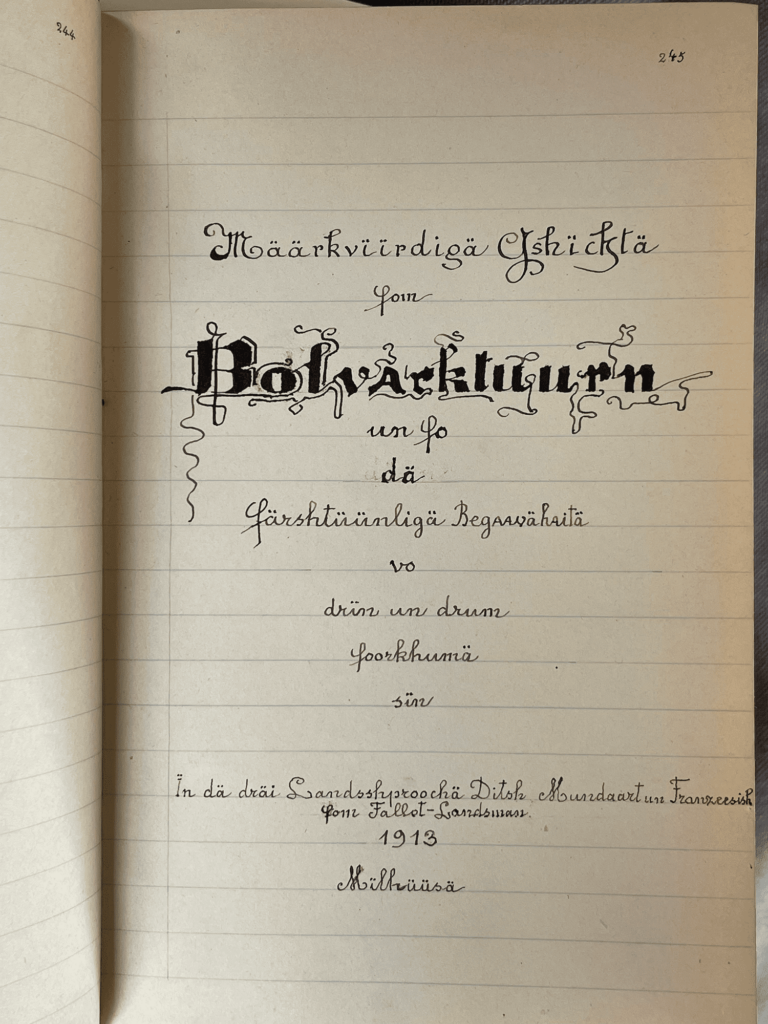 244
245
Määrkviirdigä Gshichtä
fom
Bolvärktuurn
un fo
dä
färshtüünligä Begaavähaitä
vo
drin un drum
foorkhumä
sin
In dä dräi Landsshproochä Ditsh Mundaart un Franzeesish
fom Fallot-Landsman.
1913
Milhüüsä